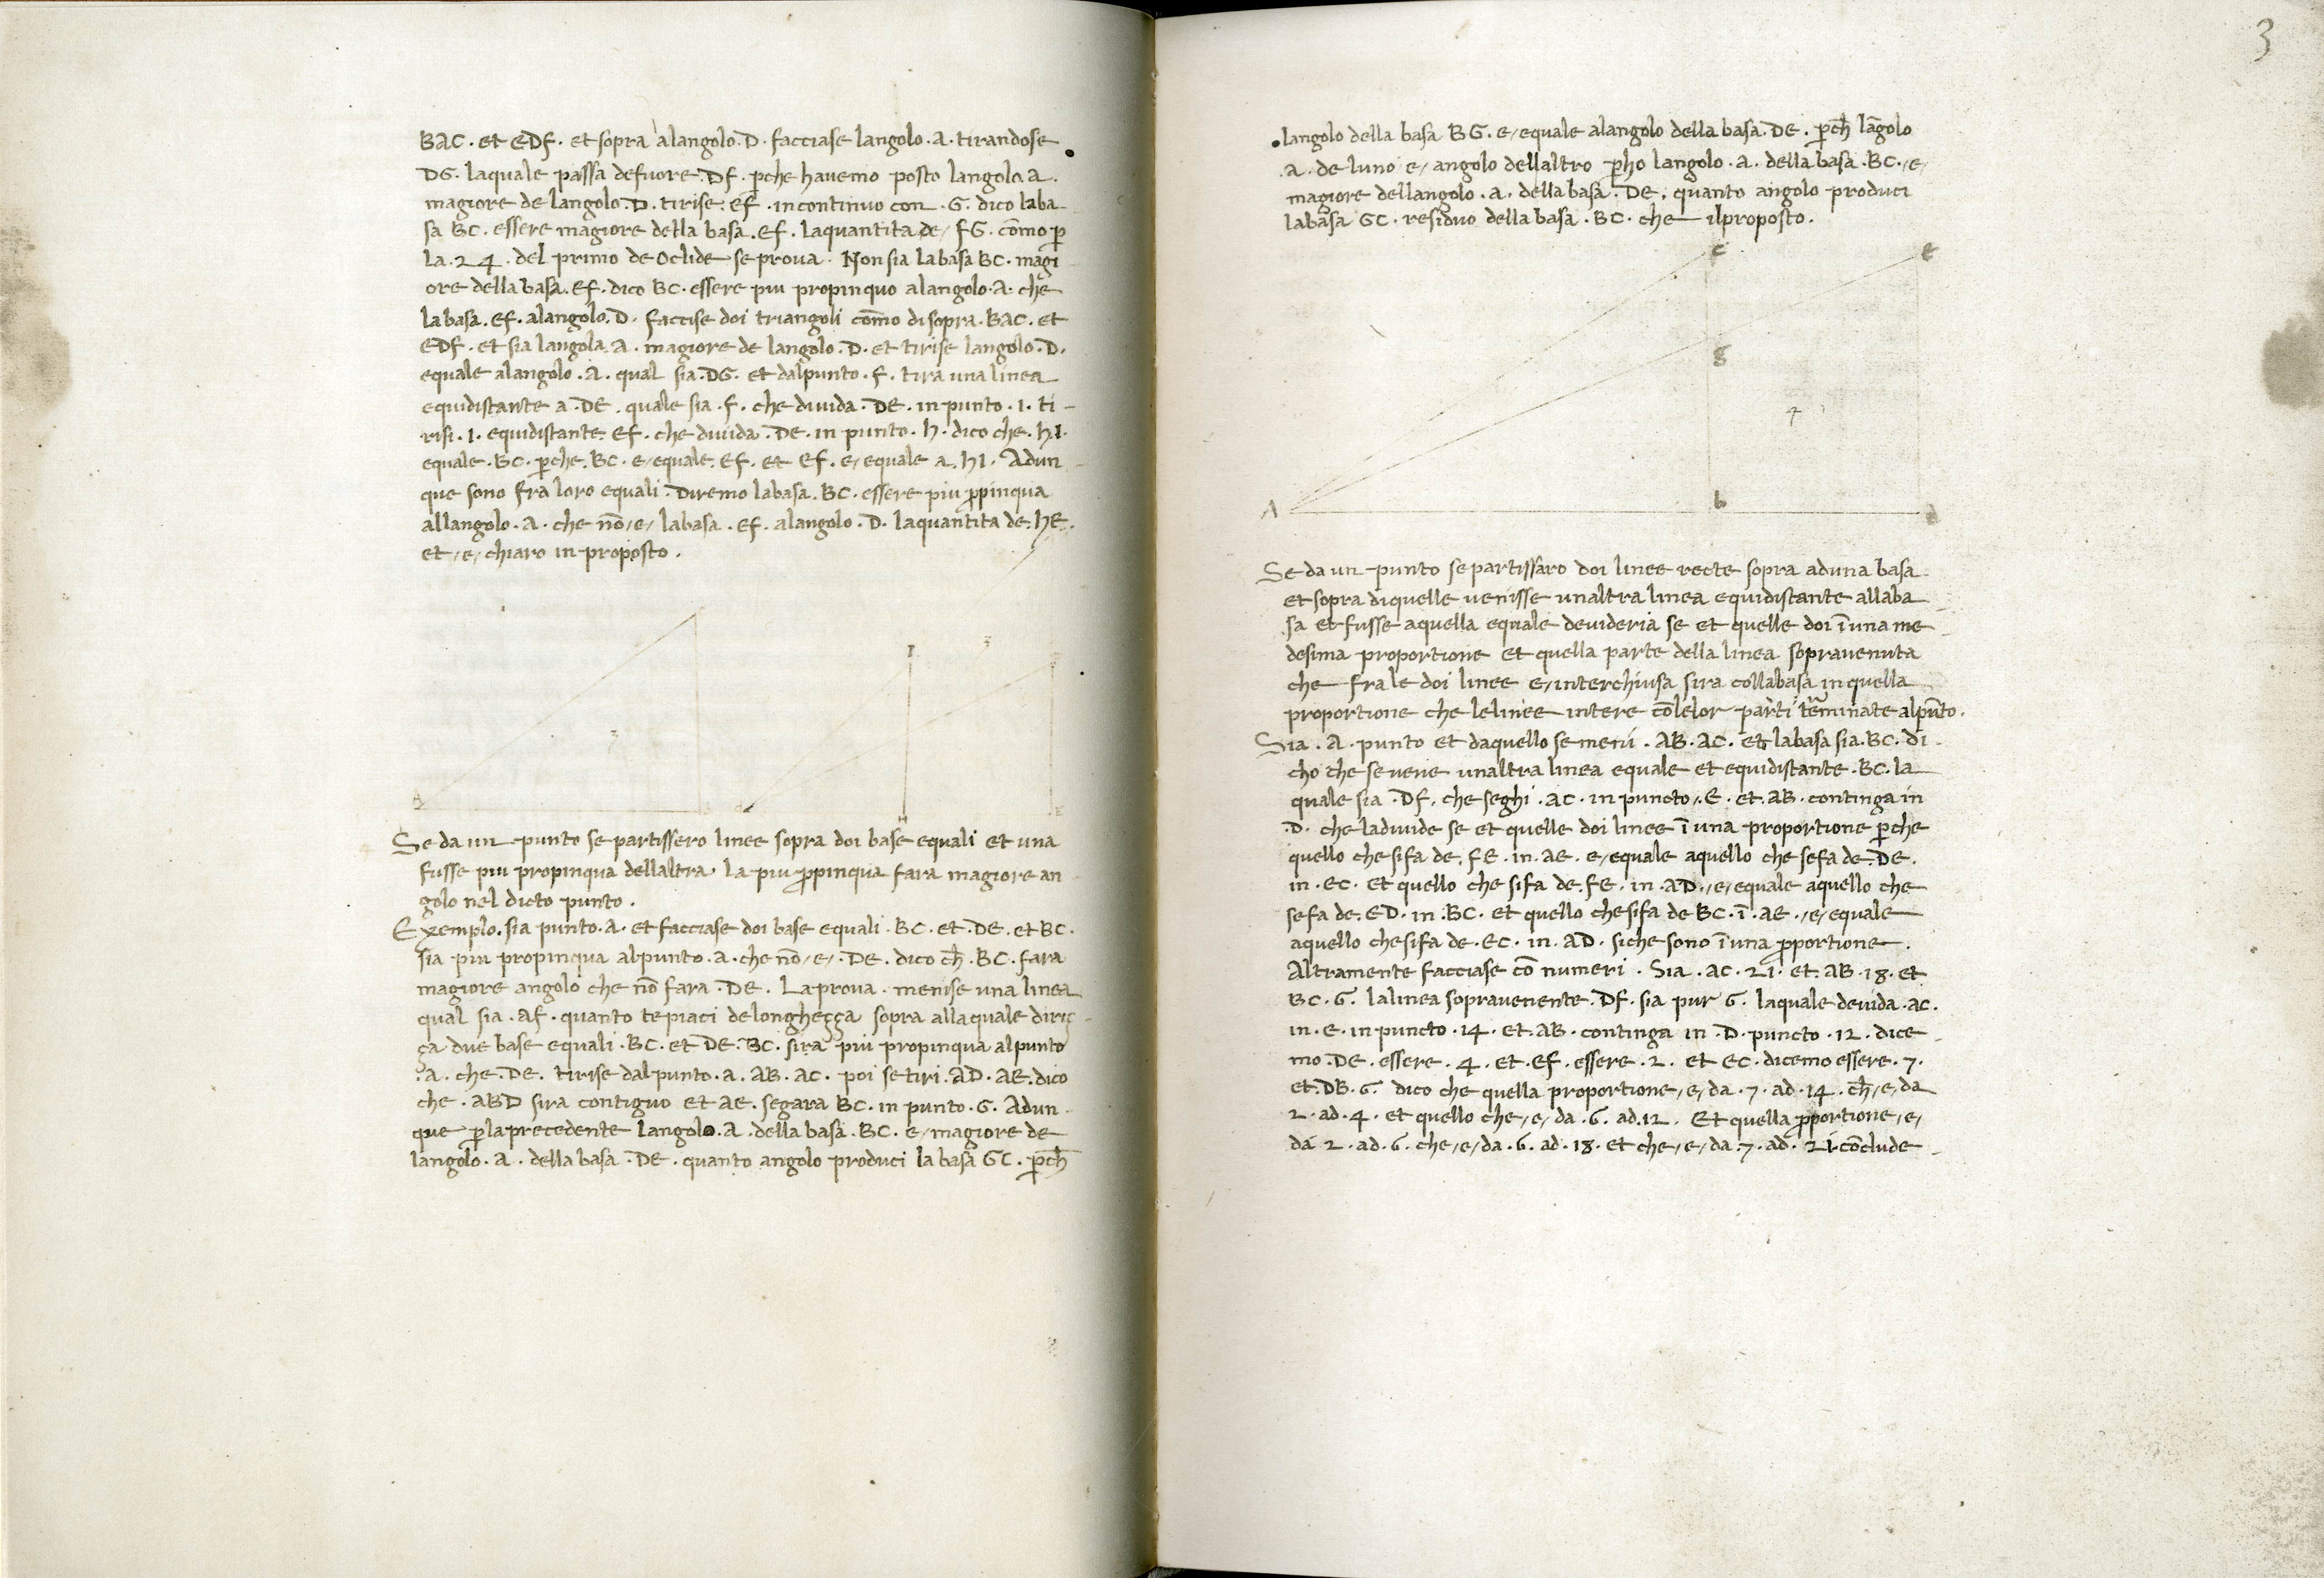 BAC · et EDf · et sopra alangolo · D · facciase langolo · A · tirandose
DG · laquale passa defuore · Df · p̄che havemo posto langolo · A ·
magiore de langolo · D · tirise · Ef · incontinuo con · G · dico laba
sa BC · essere magiore della basa · Ef · laquantita de / fG · cōmo p̄
la · 24 · del primo de Oclide se prova · Non sia la basa BC · magi
ore della basa · Ef · dico BC · essere piu propinquo alangolo · A · che
la basa · Ef · alangolo · D · faccise doi triangoli cōmo di sopra · BAC · et
EDf · et sia langola · A · magiore de langolo · D · et tirise langolo · D ·
equale alangolo · A · qual sia · DG · et dalpunto · f · tira una linea
equidistante a · DE · quale sia · f · che divida · DE · in punto · I · ti -
risi · I · equidistante · Ef · che divida · DE · in punto · h · dico che · hI ·
equale · BC · p̄che · BC · e / equale · Ef · et Ef · e / equale a · hI · Adun
que sono fra loro equali · Diremo labasa · BC · essere piu p̄pinqua
allangolo · A · che nō / e / labasa · Ef · alangolo · D · laquantita de · hE ·
et / e / chiaro in proposto ·
I
H
Se da un punto se partissero linee sopra doi base equali et una
fusse piu propinqua dellaltra · la piu p̄pinqua fara magiore an
golo nel dicto punto ·
Exemplo · sia punto · A · et facciase doi base equali · BC · et · DE · et BC ·
sia piu propinqua alpunto · A · che nō / e / · DE · dico ch̄ · BC · fara
magiore angolo che nō fara · DE · La prova · menise una linea
qual sia · Af · quanto te piaci de longheçça sopra allaquale diriç -
ça due base equali · BC · et DE · BC · sira piu propinqua alpunto
· A · che · DE · tirise dalpunto · A · AB · AC · poi se tiri · AD · AE · dico
che · ABD sira contiguo et AE · segara BC · in punto · G · Adun
que p̄ la precedente langolo · A · della basa · BC · e / magiore de
langolo · A · della basa · DE · quanto angolo produci la basa GC · p̄ch̄
3
langolo della basa BG · e / equale alangolo della basa · DE · p̄ch̄ lāgolo
· A · de luno e / angolo dellaltro p̄ho langolo · A · della basa · BC · / e /
magiore dellangolo · A · della basa · DE · quanto angolo produci
labasa GC · residuo della basa · BC · che ilproposto ·
c
E
g
4
A
b
Se da un punto se partissaro doi linee recte sopra aduna basa
et sopra diquelle venisse unaltra linea equidistante allaba
sa et fusse aquella equale devideria se et quelle doi ī una me
desima proportione et quella parte della linea sopravenuta
che fra le doi linee e / interchiusa sira collabasa in quella
proportione che le linee intere cōlelor parti tēminate alpūto ·
Sia · A · punto et daquello se meni · AB · AC · et labasa sia · BC · di
cho che se vene unaltra linea equale et equidistante · BC · la
quale sia · Df · che seghi · AC · in puncto · E · et · AB · continga in
· D · che ladivide se et quelle doi linee ī una proportione p̄che
quello che sifa de · fE · in · AE · e / equale aquello che sefa de · DE ·
in · EC · et quello che sifa de · fE · in · AD · / e / equale aquello che
sefa de · ED · in · BC · et quello che sifa de BC · ī · AE · / e / equale
aquello che sifa de · EC · in · AD · siche sono ī una p̄portione ·
Altramente facciase cō numeri · Sia · AC · 21 · et · AB · 18 · et
BC · 6 · la linea sopravenente · Df · sia pur 6 · laquale devida · AC ·
in · E · in puncto · 14 · et · AB · continga in · D · puncto · 12 · dice
mo · DE · essere · 4 · et · Ef · essere · 2 · et EC · dicemo essere · 7 ·
et DB · 6 · dico che quella proportione / e / da · 7 · ad · 14 · ch̄ / e / da
2 · ad · 4 · et quello che / e / da · 6 · ad · 12 · Et quella p̄portione / e /
da 2 · ad · 6 · che / e / da · 6 · ad · 18 · et che / e / da · 7 · ad · 21 · cōclude